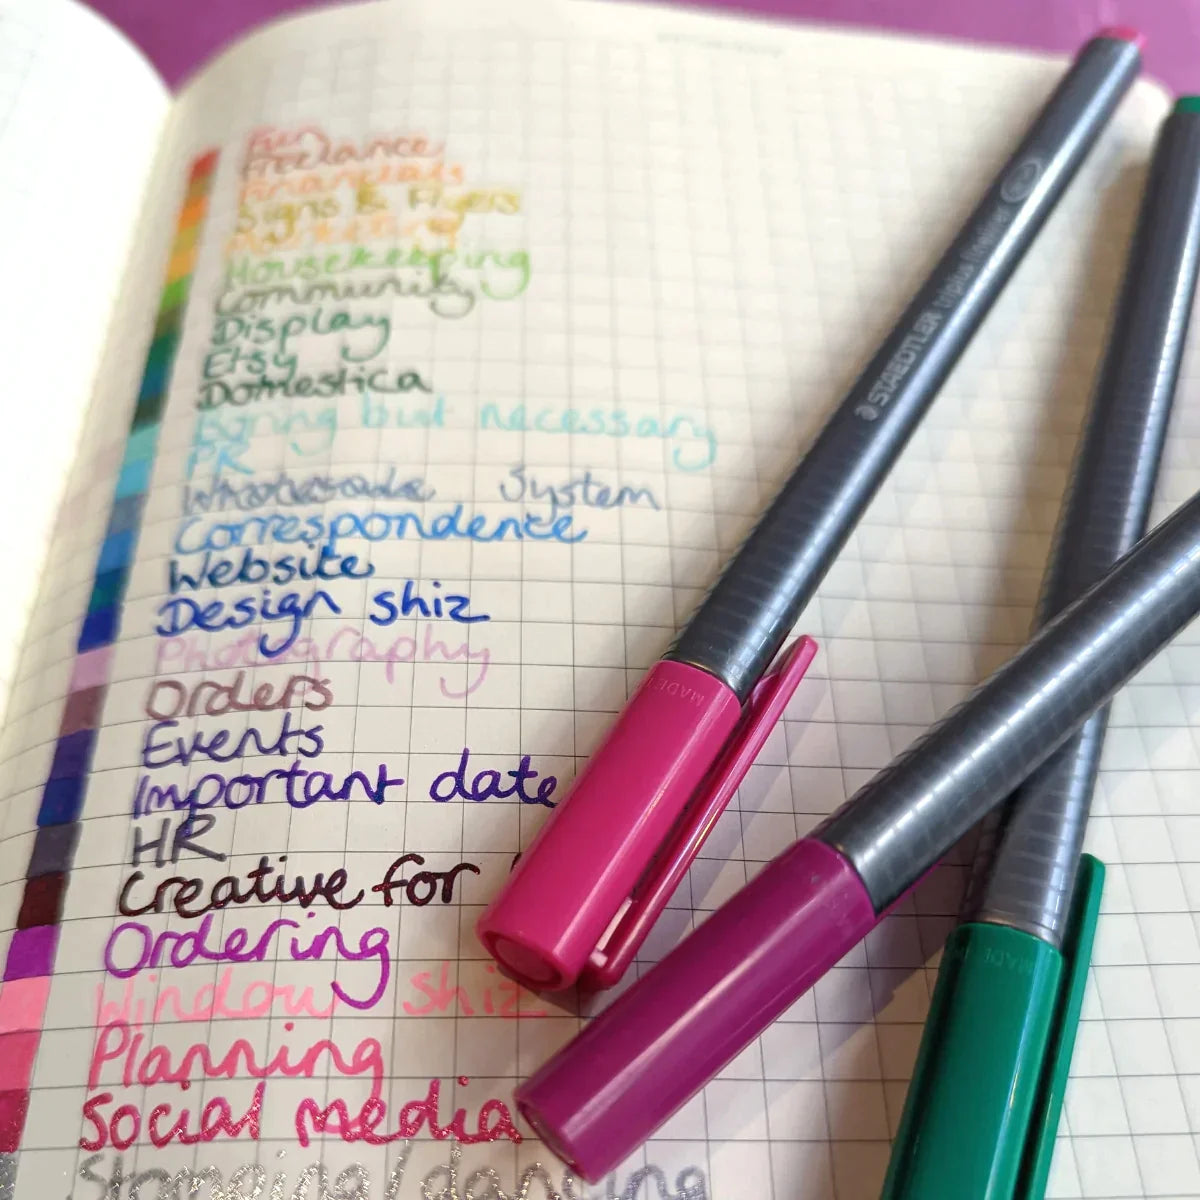 Fun
Freelance
Financials
Signs & Flyers
Marketing
Housekeeping
Community
Display
Etsy
Domestica
Boring but necessary
PR
System
Correspondence
Website
Design shiz
Photography
Orders
Events
Important date
HR
Creative for
Ordering
Window shiz
Planning
Social media
STAEDTLER triplus fineliner
MADE
MADE